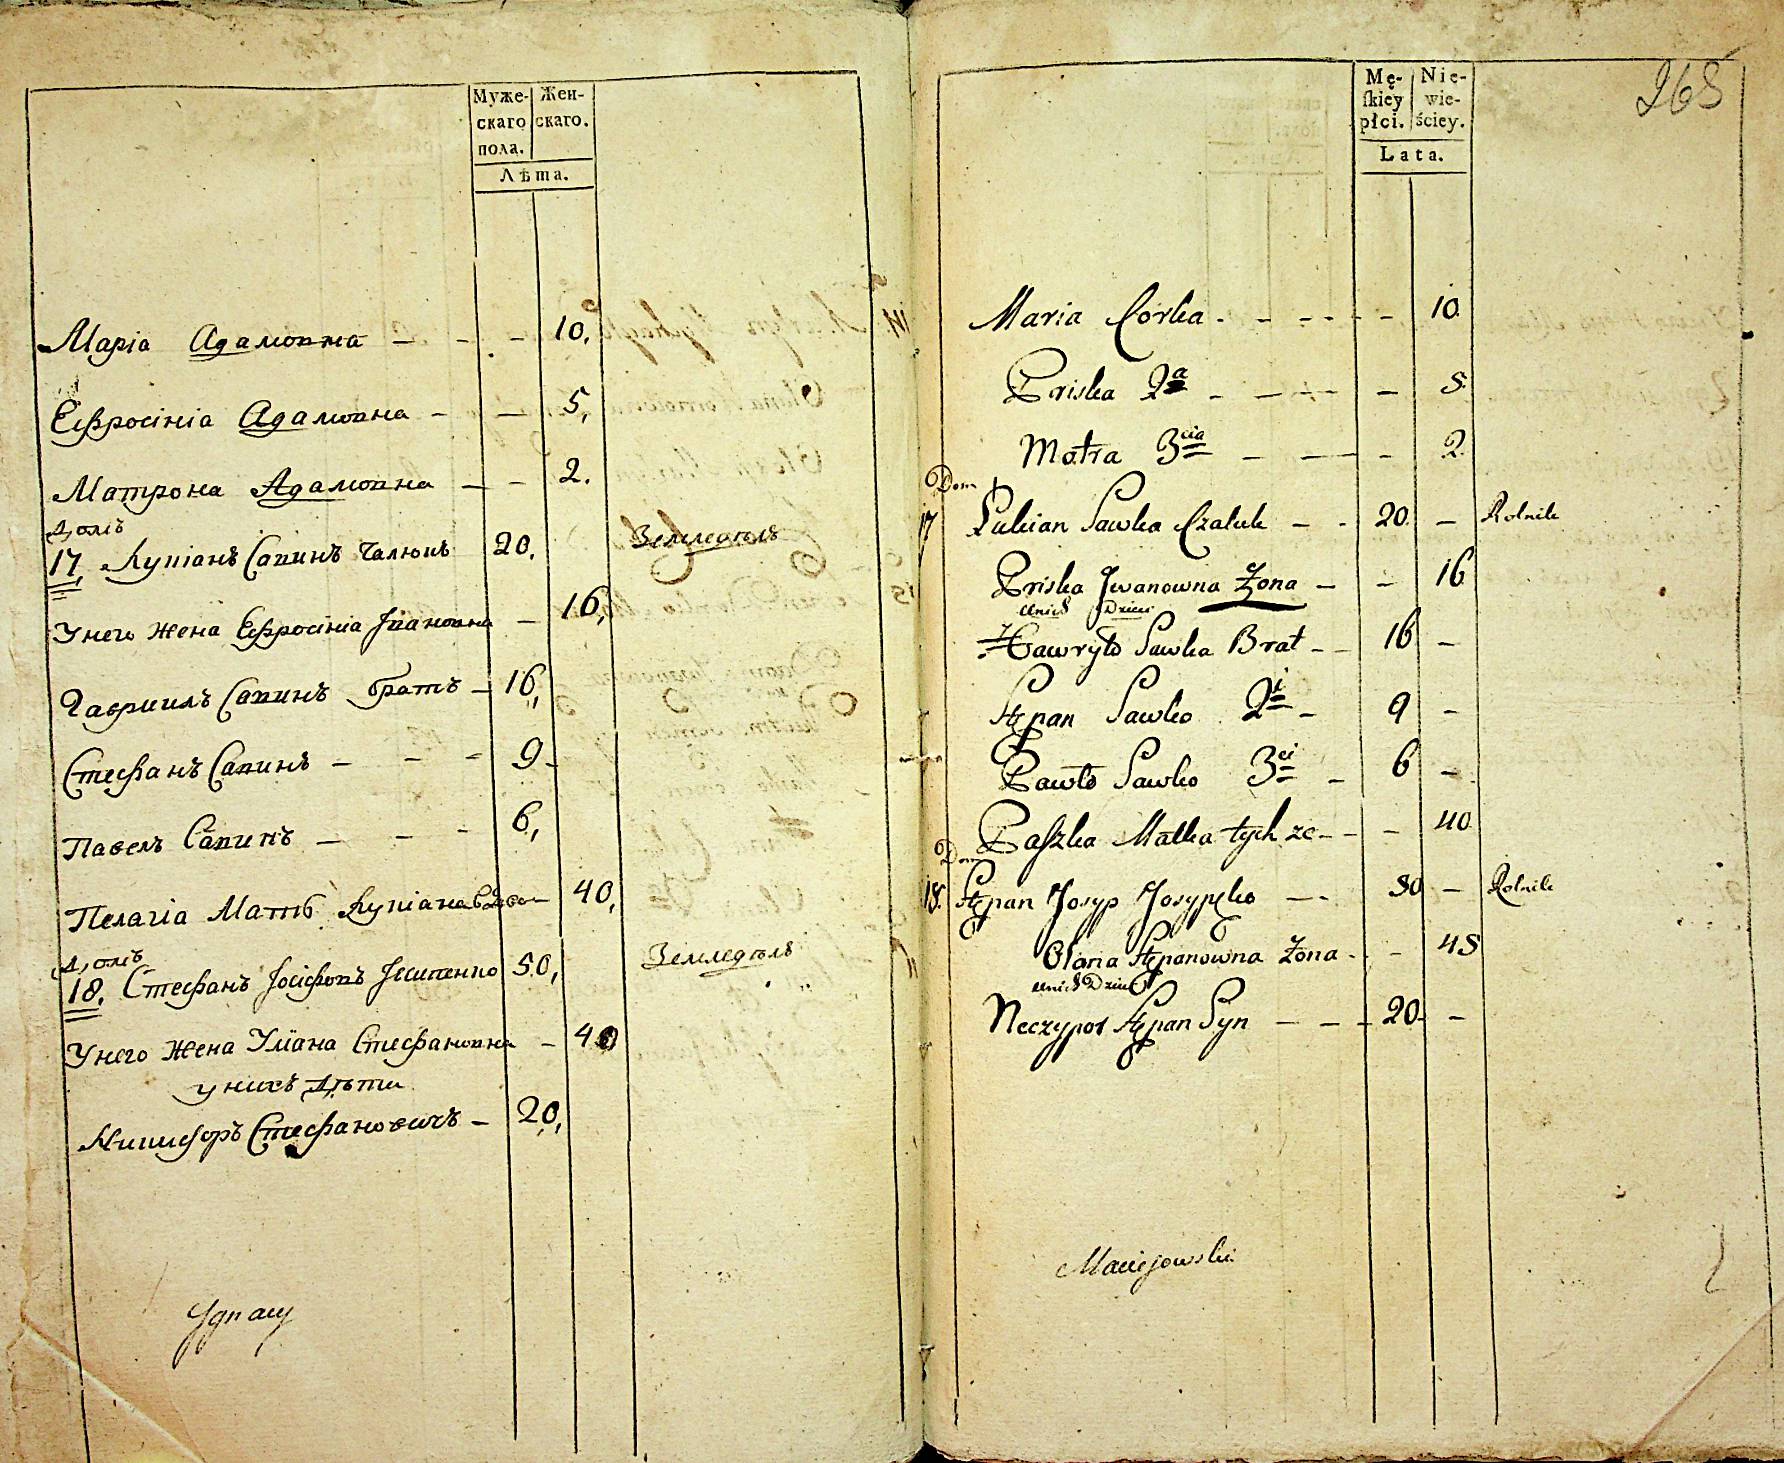 Муже- Жен-
скаго скаго.
пола.
Лѣта.
Маріа Адамовна — — — 10,
Ефросініа Адамовна — — 5,
Матрона Адамовна — — 2.
Домъ
17, Лукіанъ Савинъ Чалюкъ 20, Земледѣлъ
У него жена Ефросініа Івановна — 16,
Гавриилъ Савинъ братъ — 16,
Стефанъ Савинъ — — — 9 —
Павелъ Савинъ — — — 6,
Пелагіа Мать Лукіана 40,
Домъ
18, Стефанъ Іосіфовъ Іосипенко 50, Земледѣлъ
У него Жена Уліана Стефановна — 40
у нихъ дѣти
Никифоръ Стефановичъ — 20,
Ygnacy
268
Mę- Nie-
skiey wie-
płci. ściey.
Lata.
Maria Corka - - - - - 10.
Priska 2a - - - - - 5.
Matra 3cia - - - - 2.
Dom
17 Lukian Sawka Czaluk - - 20. - Rolnik
Priska Jwanowna Żona - - 16
unich Dzieci
Hawryło Sawka Brat - - 16 -
Stępan Sawko 2i - 9 -
Pawło Sawko 3ci - 6 -
Paszka Matka tych ze - - - 40.
Dom
18. Stępan Josyp Josypęko - - 50 - Rolnik
Olana Stępanowna Żona - - 45
unich Dzieci
Neczypor Stępan Syn - - - 20 - -
Maciejowski